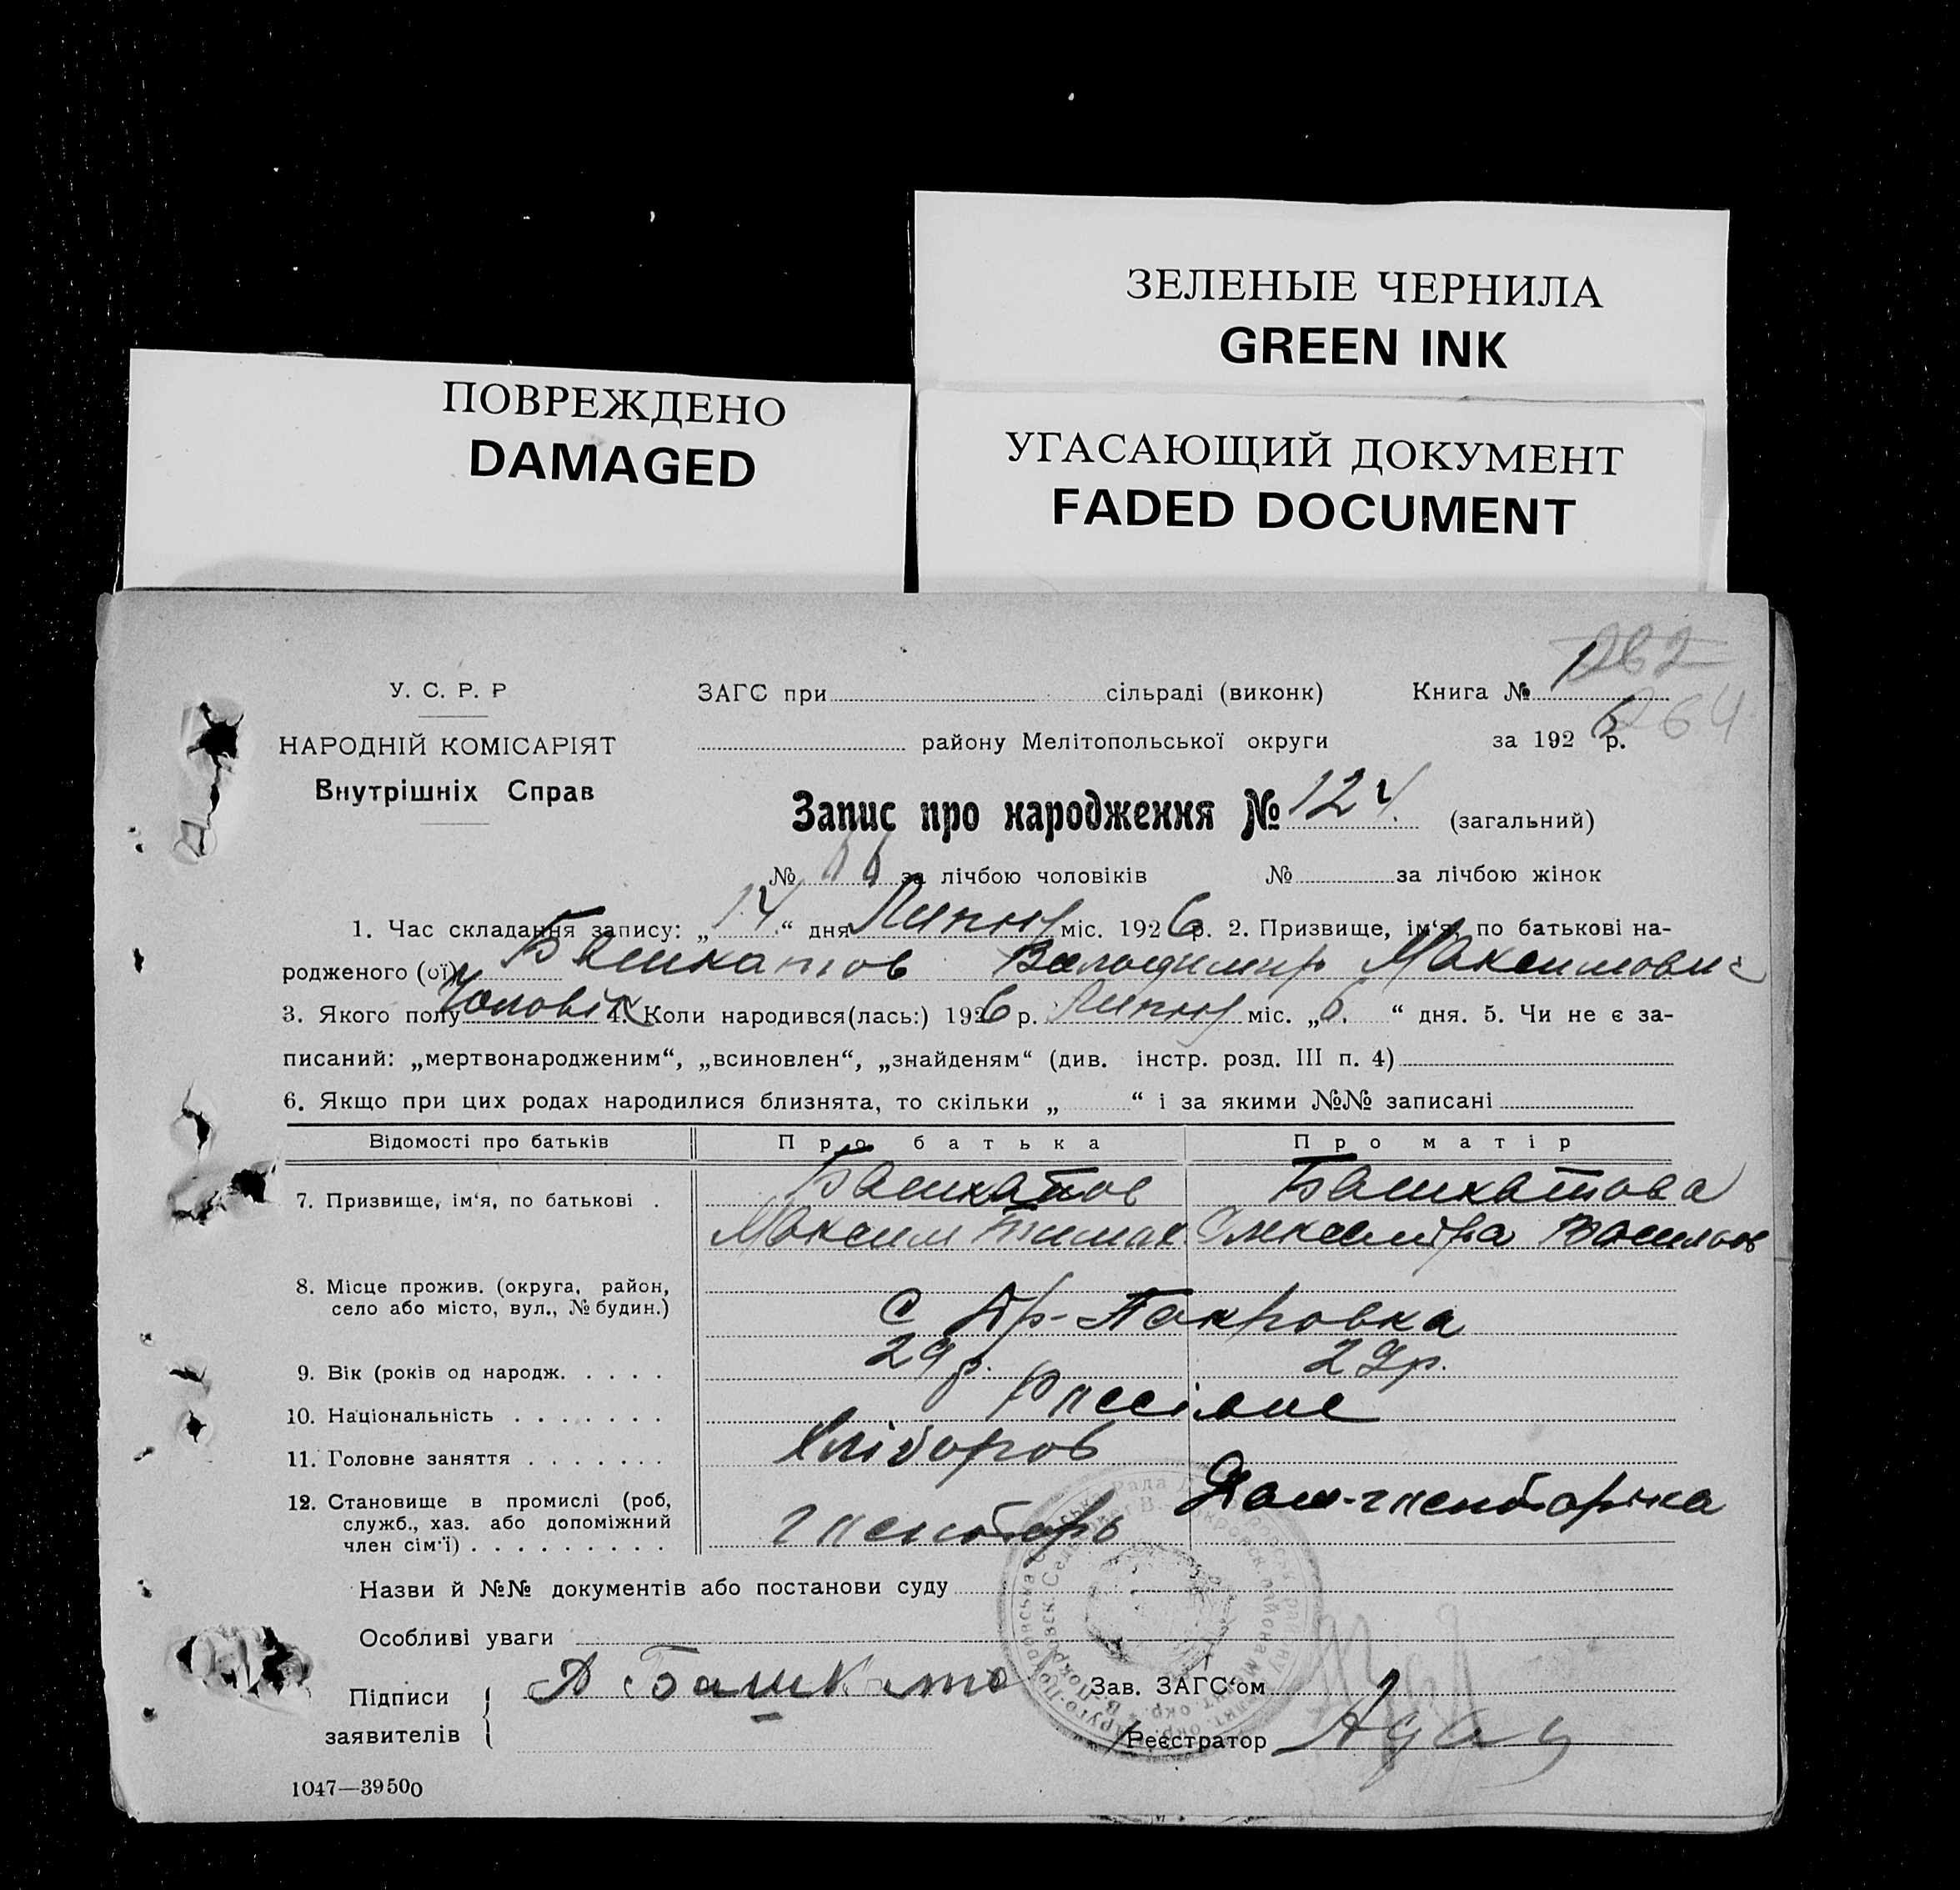 ЗЕЛЕНЫЕ ЧЕРНИЛА
GREEN INK
ПОВРЕЖДЕНО
DAMAGED
УГАСАЮЩИЙ ДОКУМЕНТ
FADED DOCUMENT
262
264
У. С. Р. Р
ЗАГС при сільраді (виконк) Книга № 1
НАРОДНІЙ КОМІСАРІЯТ
району Мелітопольської округи за 1926 р.
Внутрішніх Справ
Запис про народження № 124. (загальний)
№ 66 за лічбою чоловіків № за лічбою жінок
1. Час складання запису: „14“ дня Липня міс. 1926 р. 2. Призвище, ім‘я, по батькові на-
родженого (ої) Башкатов Володимир Максимович
3. Якого полу Чоловік 4. Коли народився(лась:) 1926 р. Липня міс. „6.“ дня. 5. Чи не є за-
писаний: „мертвонародженим“, „всиновлен“, „знайденям“ (див. інстр. розд. III п. 4)
6. Якщо при цих родах народилися близнята, то скільки „ “ і за якими №№ записані
Відомості про батьків Про батька Про матір
7. Призвище, ім‘я, по батькові . Башкатов Башкатова
Максим Тимоф. Олександра Васильов
8. Місце прожив. (округа, район,
село або місто, вул., № будин.) С Др-Покровка
9. Вік (років од народж. . . . . 29 р. 29 р.
10. Національність . . . . . . .
11. Головне заняття . . . . . . . Хлібороб
12. Становище в промислі (роб,
служб., хаз. або допоміжний
член сім‘ї) . . . . . . . . .
Назви й №№ документів або постанови суду
Особливі уваги
Підписи
заявителів
А Башкато
Зав. ЗАГС‘ом
Реєстратор
1047—39500